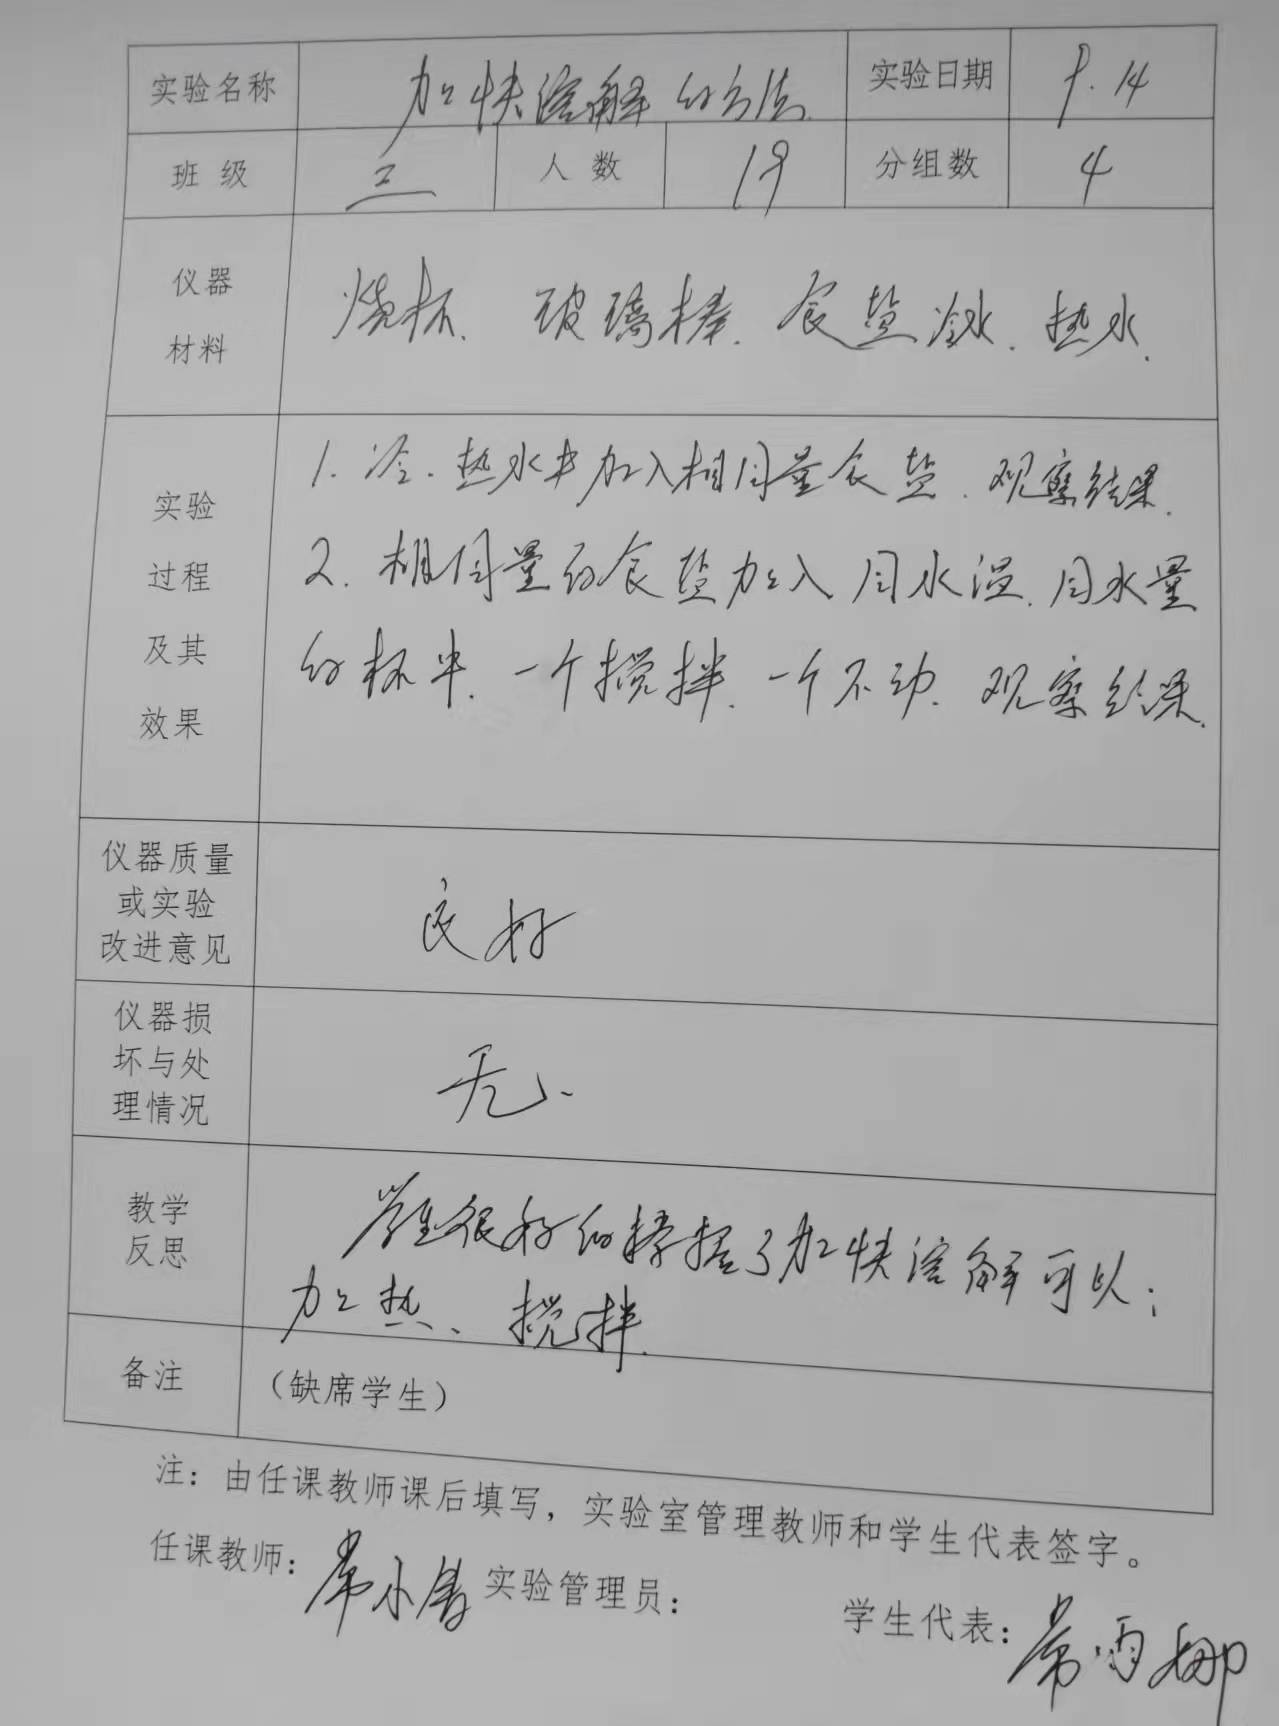 实验名称 加快溶解的方法. 实验日期 9.14
班 级 三 人 数 19 分组数 4
仪器
材料
烧杯. 玻璃棒. 食盐 冷水. 热水.
实验
过程
及其
效果
1. 冷. 热水中加入相同量食盐. 观察结果.
2. 相同量的食盐加入同水温. 同水量
的杯中. 一个搅拌. 一个不动. 观察结果.
仪器质量
或实验
改进意见
良好
仪器损
坏与处
理情况
无.
教学
反思
学生很好的掌握了加快溶解可以:
加热、搅拌.
备注 (缺席学生)
注: 由任课教师课后填写, 实验室管理教师和学生代表签字。
任课教师: 常小 实验管理员: 学生代表: 常雨娜